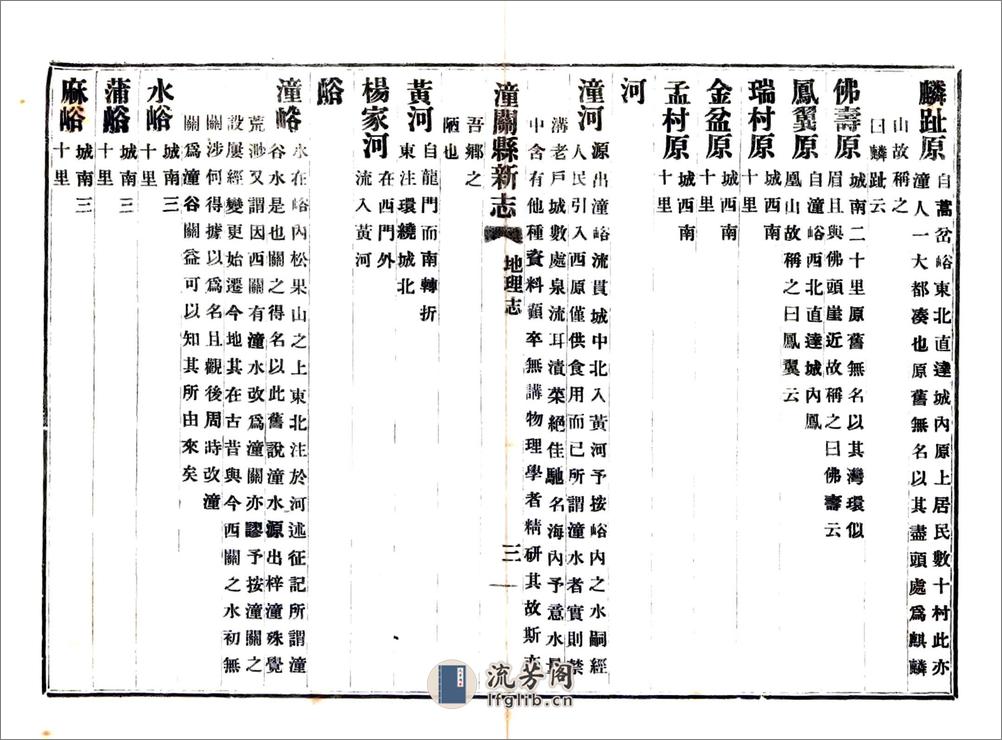 麟趾原自蒿岔峪東北直達城內原上居民數十村此亦
潼人一大都凑也原舊無名以其盡頭處爲麒麟
山故稱之
曰麟趾云
佛壽原城南二十里原舊無名以其灣環似
眉且與佛頭崖近故稱之曰佛壽云
鳳翼原自潼峪西北直達城內鳳
凰山故稱之曰鳳翼云
瑞村原城西南
十里
金盆原城西南
十里
孟村原城西南
十里
河
潼河源出潼峪流貫城中北入黃河予按峪內之水嗣經
人民引入西原僅供食用而已所謂潼水者實則禁
溝老戶城數處泉流耳漬菜絕佳馳名海內予意水長
中含有他種資料顧卒無講物理學者精研其故斯亦
吾鄉之
陋也
潼關縣新志
地理志
三
黃河自龍門而南轉折
東注環繞城北
楊家河在西門外
流入黃河
峪
潼峪水在峪內松果山之上東北注於河述征記所謂潼
谷水是也關之得名以此舊說潼水源出梓潼殊覺
荒渺又謂因西關有潼水改爲潼關亦謬予按潼關之
設屢經變更始遷今地其在古昔與今西關之水初無
關涉何得據以爲名且觀後周時改潼
關爲潼谷關益可以知其所由來矣
水峪城南三
十里
蒲峪城南三
十里
麻峪城南三
十里
流芳阁
lfglib.cn